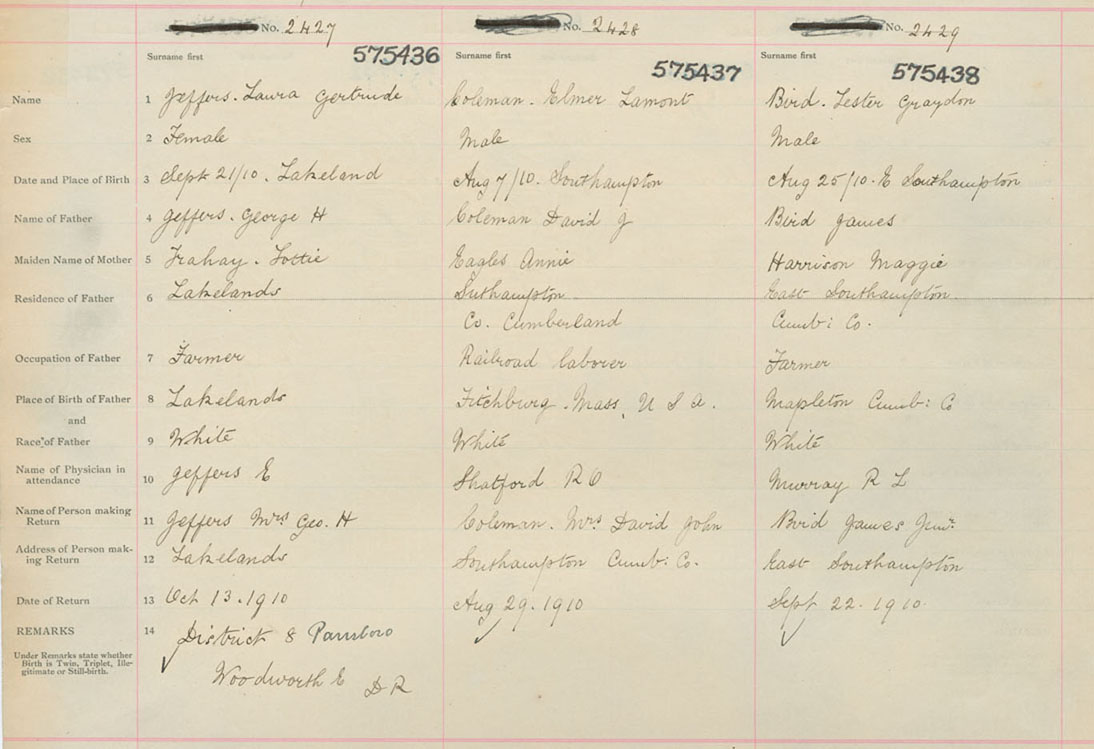 No. 2427 No. 2428 No. 2429
Surname first Surname first Surname first
575436 575437 575438
Name 1 Jeffers. Laura Gertrude Coleman. Elmer Lamont Bird. Lester Graydon
Sex 2 Female Male Male
Date and Place of Birth 3 Sept 21/10. Lakeland Aug 7/10. Southampton Aug 25/10. E Southampton
Name of Father 4 Jeffers. George H Coleman David J Bird James
Maiden Name of Mother 5 Trahay. Lottie Eagles Annie Harrison Maggie
Residence of Father 6 Lakelands Suthampton East Southampton
Co. Cumberland Cumb: Co.
Occupation of Father 7 Farmer Railroad laborer Farmer
Place of Birth of Father 8 Lakelands Fitchburg. Mass, U S A. Mapleton Cumb: Co
and
Race of Father 9 White White White
Name of Physician in
attendance 10 Jeffers E Shatford R O Murray R L
Name of Person making
Return 11 Jeffers Mrs Geo. H Coleman. Mrs David John Bird James Junr.
Address of Person mak-
ing Return 12 Lakelands Southampton Cumb: Co. East Southampton
Date of Return 13 Oct 13. 1910 Aug 29. 1910 Sept 22. 1910
REMARKS 14 District 8 Parrsboro
Under Remarks state whether
Birth is Twin, Triplet, Ille-
gitimate or Still-birth.
Woodworth E D R